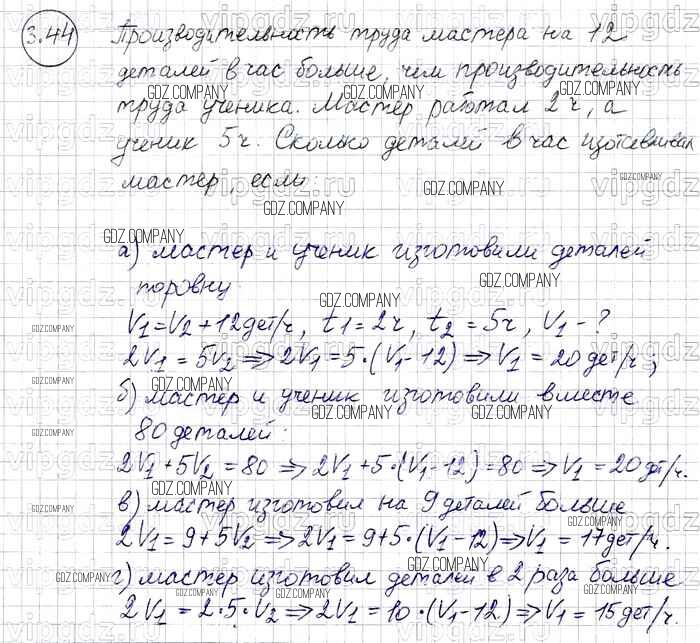 3.44 Производительность труда мастера на 12
деталей в час больше, чем производительность
труда ученика. Мастер работал 2ч, а
ученик 5ч. Сколько деталей в час изготавливал
мастер, если:
а) мастер и ученик изготовили деталей
поровну:
V₁=V₂+12дет/ч, t₁=2ч, t₂=5ч, V₁-?
2V₁=5V₂⇒2V₁=5·(V₁-12)⇒V₁=20дет/ч;
б) мастер и ученик изготовили вместе
80 деталей:
2V₁+5V₂=80⇒2V₁+5·(V₁-12)=80⇒V₁=20дет/ч.
в) мастер изготовил на 9 деталей больше
2V₁=9+5V₂⇒2V₁=9+5·(V₁-12)⇒V₁=17дет/ч.
г) мастер изготовил деталей в 2 раза больше
2V₁=2·5·V₂⇒2V₁=10·(V₁-12)⇒V₁=15дет/ч.
vipgdz.ru
GDZ.COMPANY